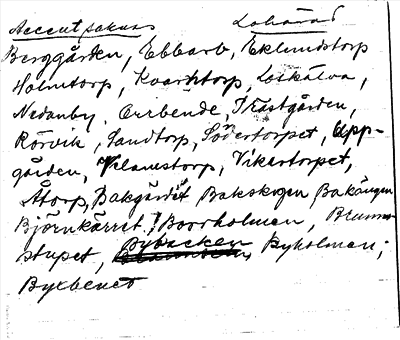 Accent saknas Lobärad
Berggården, Ebbarb, Eklundstorp
Holmtorp, Kvarntorp, Löskälva,
Nedanby, Orrbende, Trästgården,
Rörvik, Sandtorp, Södertorpet, Upp-
gården, Vilamstorp, Vikertorpet,
Åtorp, Bakgärdet Bakskogen, Bakängen
Björnkärret, Boorholmen, Brunns-
stupet, Bybacken, Byholmen;
Byxbenet